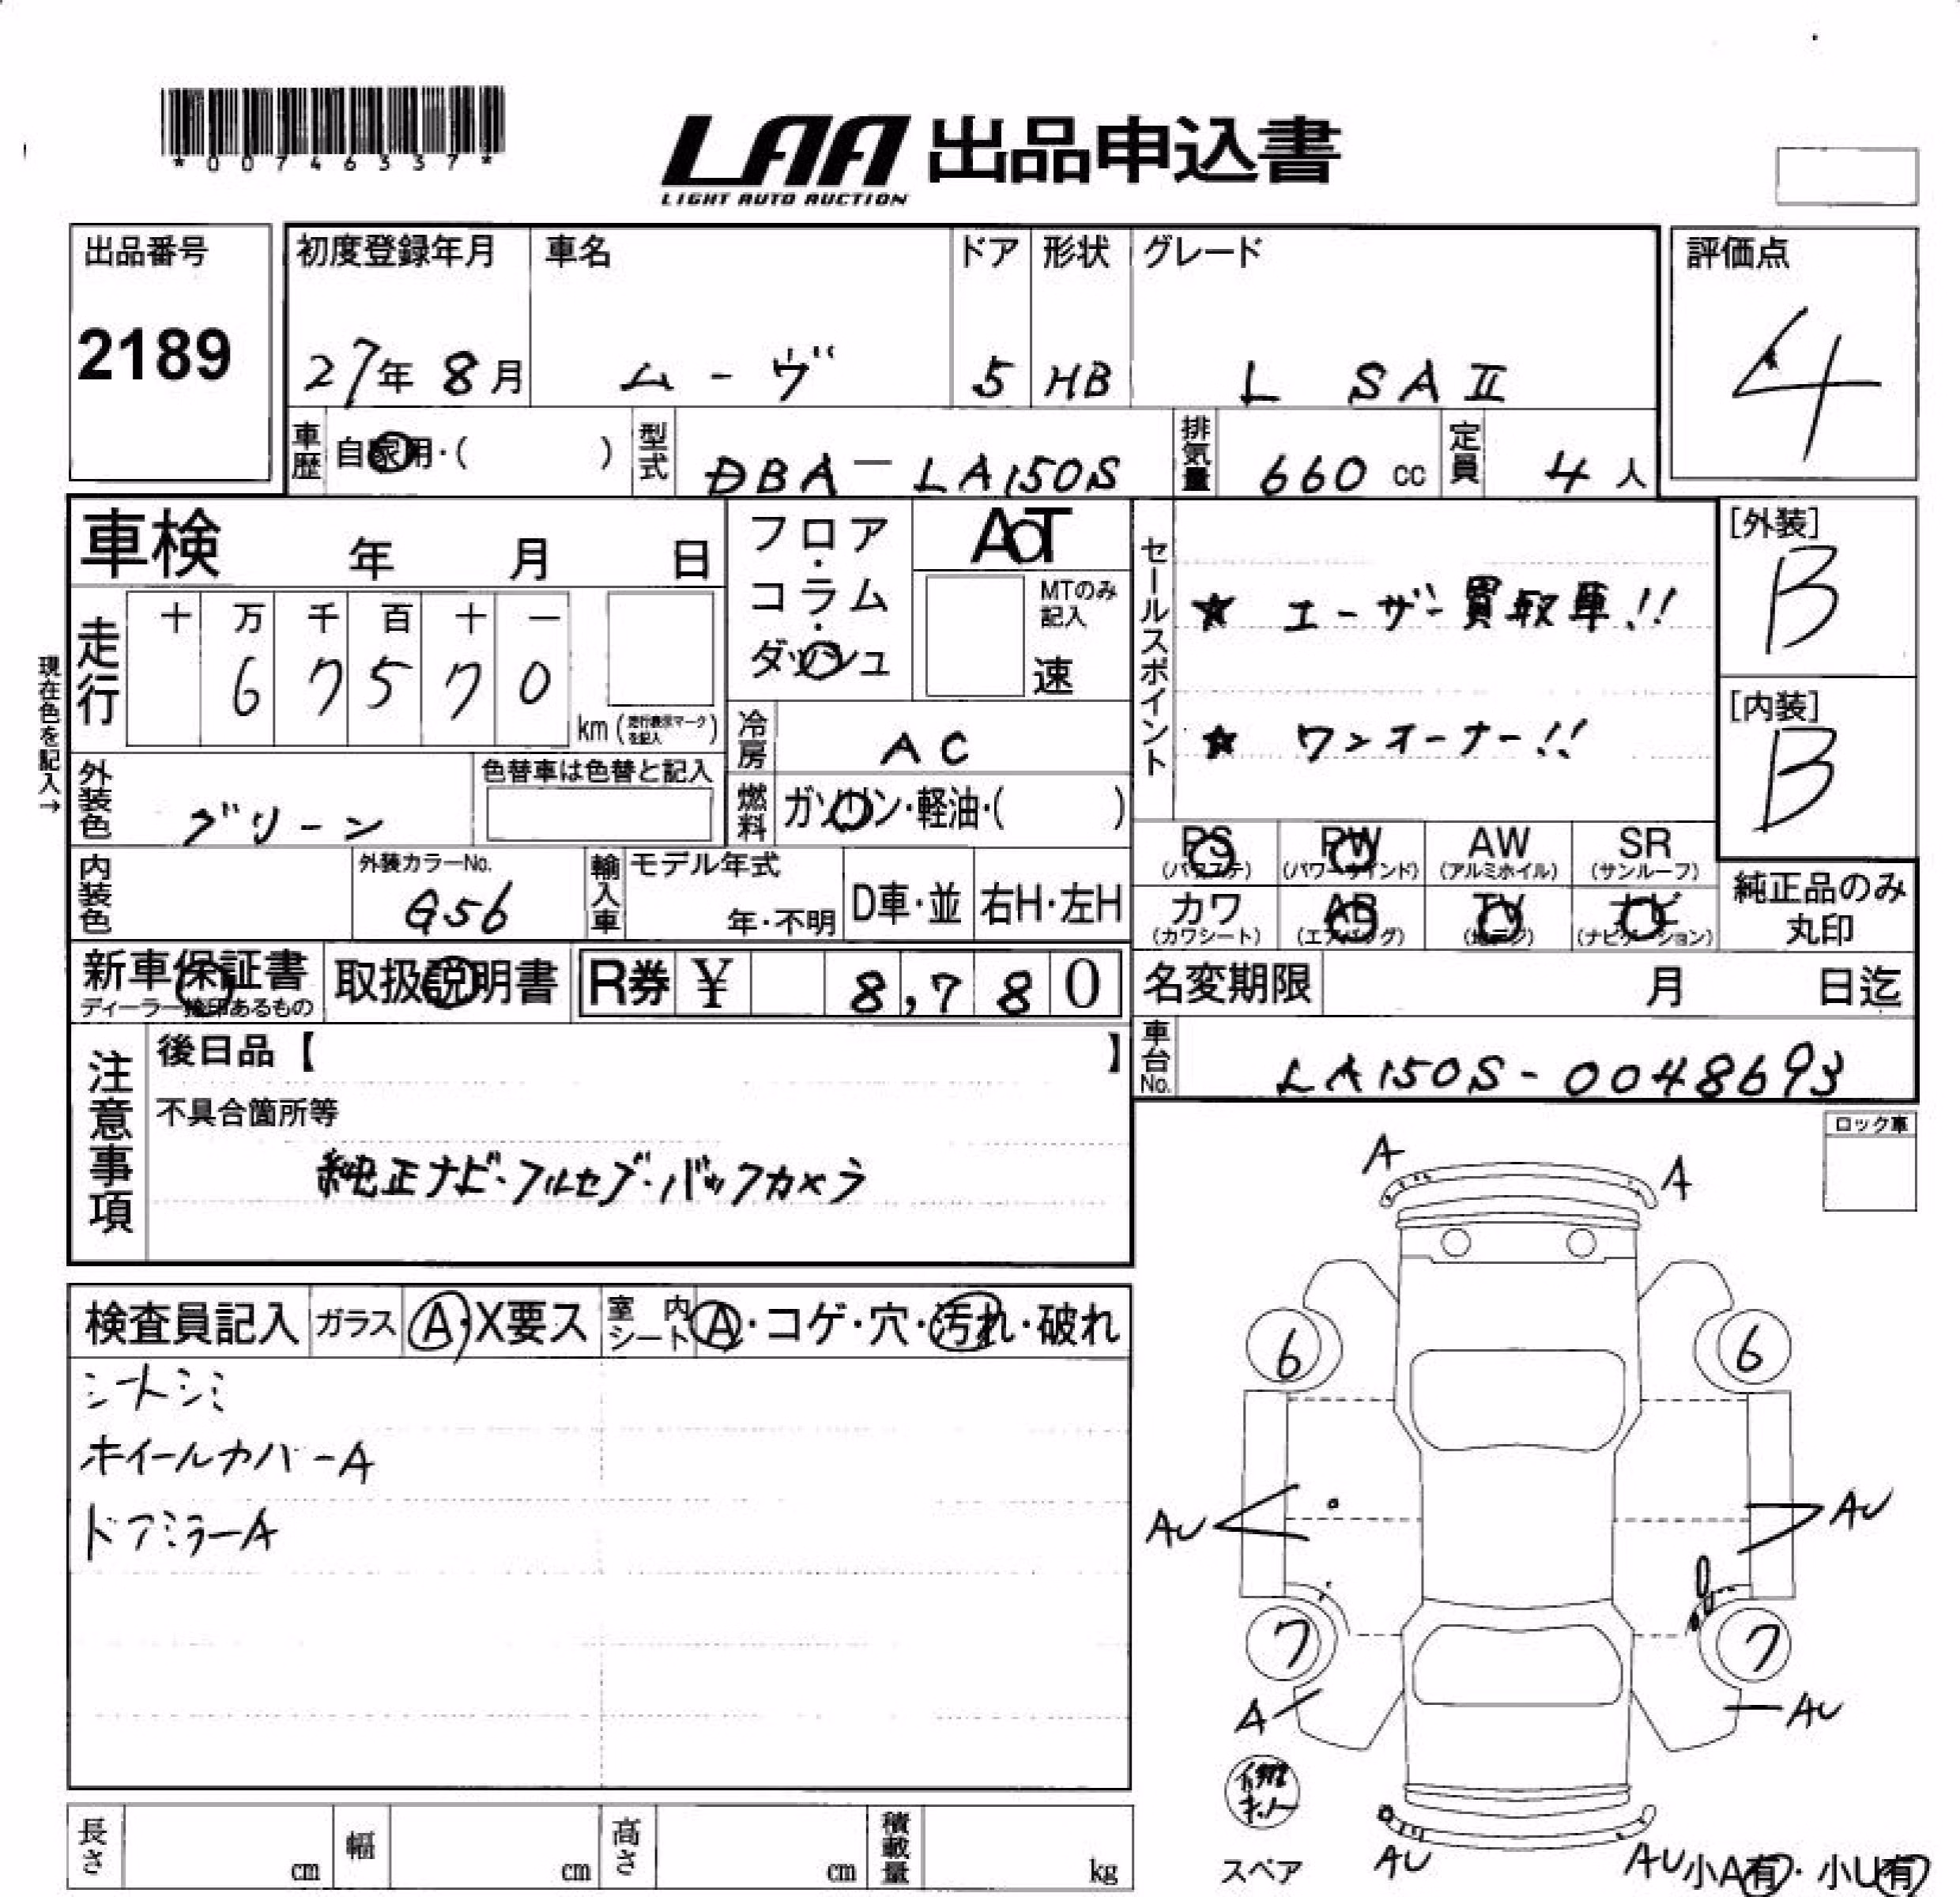 *00746337*
LAA 出品申込書
LIGHT AUTO AUCTION
出品番号
2189
初度登録年月
27年 8月
車名
ムーヴ
ドア
5
形状
HB
グレード
L SAⅡ
評価点
4
車歴
自家用・( )
型式
DBA-LA150S
排気量
660 cc
定員
4 人
車検 年 月 日
フロア・コラム・ダッシュ
AT
MTのみ記入
速
セールスポイント
★ ユーザー買取車!!
★ ワンオーナー!!
[外装]
B
[内装]
B
現在色を記入→
走行
十 万 千 百 十 一
6 7 5 7 0
km (走行表示マークを記入)
冷房
AC
外装色
グリーン
色替車は色替と記入
燃料
ガソリン・軽油・( )
内装色
外装カラーNo.
G56
輸入車
モデル年式
年・不明
D車・並
右H・左H
PS (パワステ)
PW (パワーウインド)
AW (アルミホイル)
SR (サンルーフ)
カワ (カワシート)
AB (エアバッグ)
TV (地デジ)
ナビ (ナビゲーション)
純正品のみ丸印
新車保証書
ディーラー捺印あるもの
取扱説明書
R券 ¥ 8,780
名変期限 月 日迄
車台No.
LA150S-0048693
注意事項
後日品【 】
不具合箇所等
純正ナビ・フルセグ・バックカメラ
ロック車
検査員記入
ガラス
A・X要ス
室内シート
A・コゲ・穴・汚れ・破れ
シートシミ
ホイールカバーA
ドアミラーA
A
A
6
6
AU
AU
7
7
A
AU
修理キット
スペア
AU
AU
小A有・小U有
長さ cm
幅 cm
高さ cm
積載量 kg